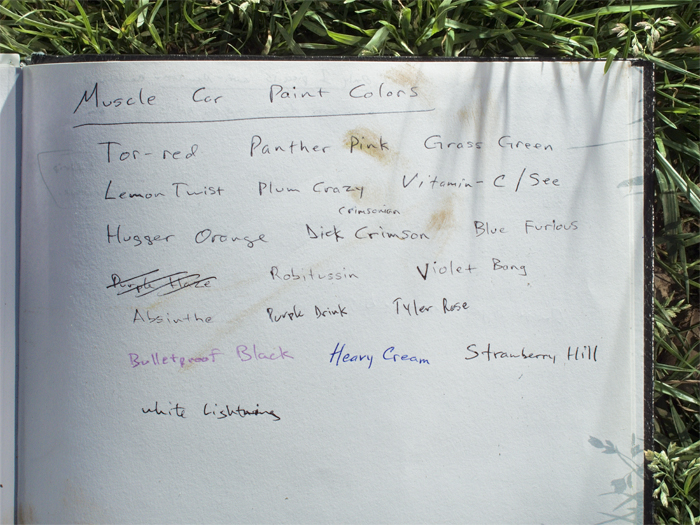 Muscle Car Paint Colors
Tor-red Panther Pink Grass Green
Lemon Twist Plum Crazy Vitamin-C/See
Crimsonian
Hugger Orange Dick Crimson Blue Furious
Purple Haze Robitussin Violet Bong
Absinthe Purple Drink Tyler Rose
Bulletproof Black Heavy Cream Strawberry Hill
White Lightning